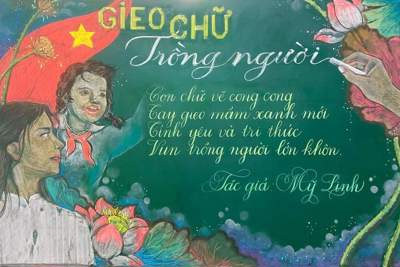 GIEO CHỮ
Trồng người
Con chữ vẽ cong cong
Tay gieo mầm xanh mới
Tình yêu và tri thức
Vun trồng người lớn khôn.
Tác giả Mỹ Linh